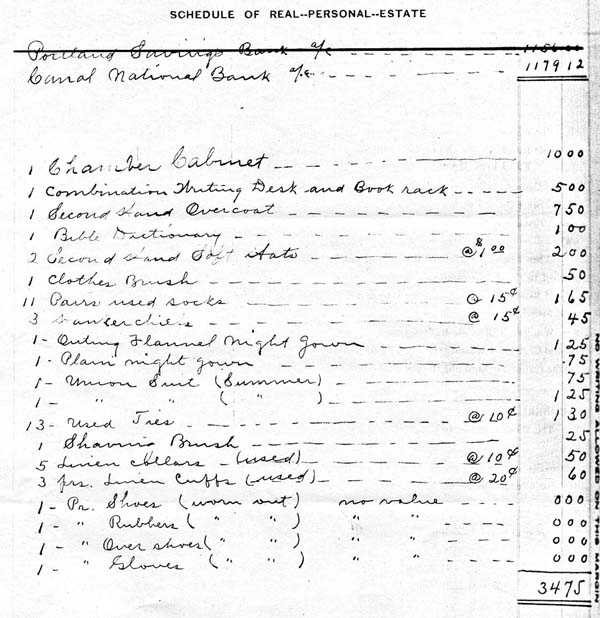 SCHEDULE OF REAL--PERSONAL--ESTATE
Portland Savings Bank a/c
Canal National Bank a/c 1179 12
1 Chamber Cabinet 10 00
1 Combination Writing Desk and Book rack 5 00
1 Second Hand Overcoat 7 50
1 Bible Dictionary 1 00
2 Second Hand Soft Hats @ $1 00 2 00
1 Clothes Brush 50
11 Pairs used socks @ 15¢ 1 65
3 Hankerchiefs @ 15¢ 45
1 - Outing Flannel Night Gown 1 25
1 - Plain night gown 75
1 - Union Suit (Summer) 75
1 - " " ( " ) 1 25
13 - Used Ties @ 10¢ 1 30
1 Shaving Brush 25
5 Linen Collars - (used) @ 10¢ 50
3 prs. Linen Cuffs (used) @ 20¢ 60
1 - Pr. Shoes (worn out) no value 0 00
1 - " Rubbers ( " " ) " " 0 00
1 - " Over shoes ( " " ) " " 0 00
1 - " Gloves ( " " ) " " 0 00
34 75
NO WRITING ALLOWED ON THIS MARGIN